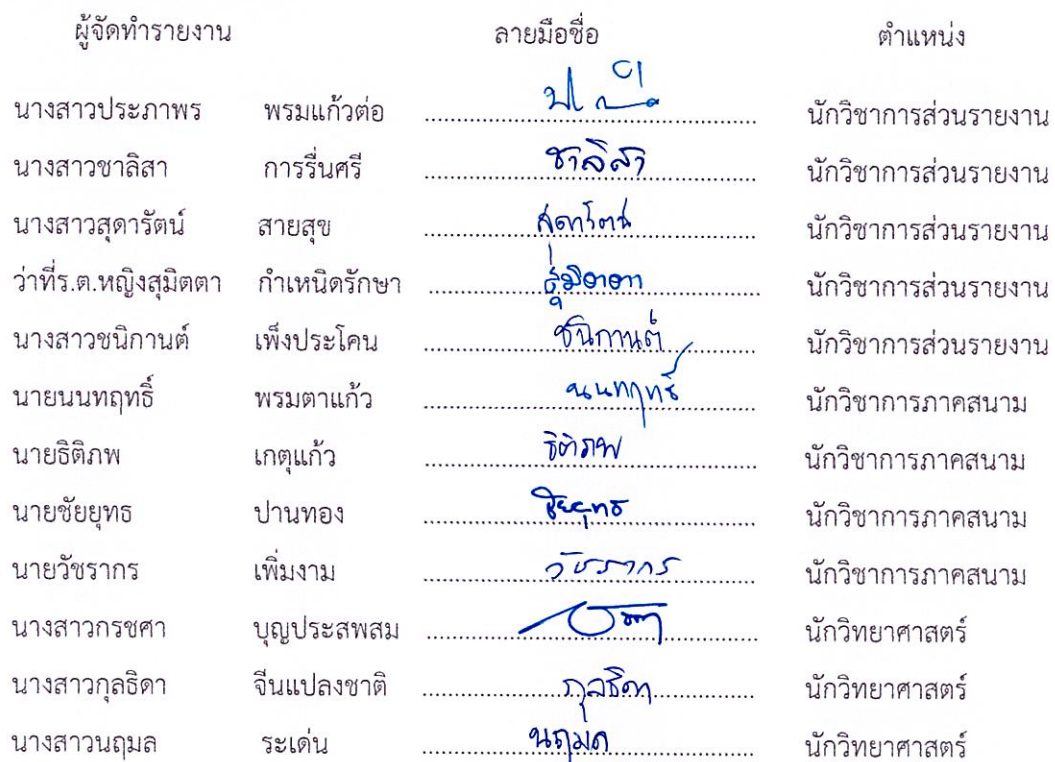 ผู้จัดทำรายงาน ลายมือชื่อ ตำแหน่ง
นางสาวประภาพร พรมแก้วต่อ นักวิชาการส่วนรายงาน
นางสาวชาลิสา การรื่นศรี ชาลิสา นักวิชาการส่วนรายงาน
นางสาวสุดารัตน์ สายสุข สุดารัตน์ นักวิชาการส่วนรายงาน
ว่าที่ร.ต.หญิงสุมิตตา กำเหนิดรักษา สุมิตตา นักวิชาการส่วนรายงาน
นางสาวชนิกานต์ เพ็งประโคน ชนิกานต์ นักวิชาการส่วนรายงาน
นายนนทฤทธิ์ พรมตาแก้ว นนทฤทธิ์ นักวิชาการภาคสนาม
นายธิติภพ เกตุแก้ว ธิติภพ นักวิชาการภาคสนาม
นายชัยยุทธ ปานทอง ชัยยุทธ นักวิชาการภาคสนาม
นายวัชรากร เพิ่มงาม วัชรากร นักวิชาการภาคสนาม
นางสาวกรชศา บุญประสพสม นักวิทยาศาสตร์
นางสาวกุลธิดา จีนแปลงชาติ กุลธิดา นักวิทยาศาสตร์
นางสาวนฤมล ระเด่น นฤมล นักวิทยาศาสตร์